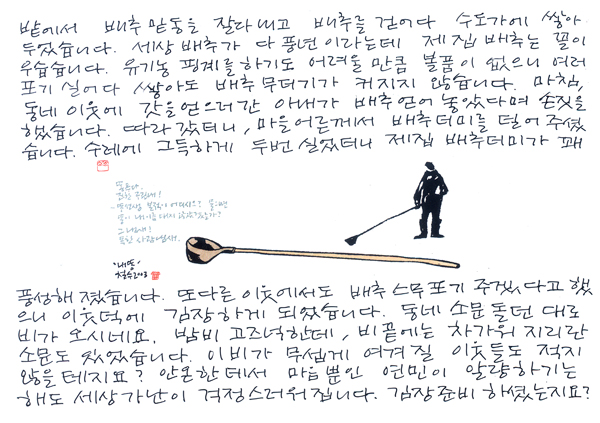 밭에서 배추 밑동을 잘라내고 배추를 걷어다 수돗가에 쌓아
두었습니다. 세상 배추가 다 풍년이라는데 제집 배추는 꼴이
우습습니다. 유기농 핑계를 하기도 어려울 만큼 볼품이 없으니 여러
포기 실어다 쌓아도 배추무더기가 커지지 않습니다. 마침,
동네 이웃에 갓을 얻으러 간 아내가 배추 얻어 놓았다며 손짓을
했습니다. 따라 갔더니, 마을어른께서 배추더미를 덜어 주셨
습니다. 수레에 그득하게 두번 실었더니 제집 배추더미가 꽤
똥 푼다.
그 너매!
'내똥'
철수2003
풍성해 졌습니다. 또다른 이웃에서도 배추 스무포기 주겠다고 했
으니 이웃덕에 김장하게 되었습니다. 동네 소문 돌던 대로
비가 오시네요. 밤비 고즈넉한데, 비 끝에는 차가워 지리란
소문도 있었습니다. 이 비가 무섭게 여겨질 이웃들도 적지
않을 테지요? 안온한데서 마음뿐인 연민이 알량하기는
해도 세상가난이 걱정스러워집니다. 김장준비 하셨는지요?